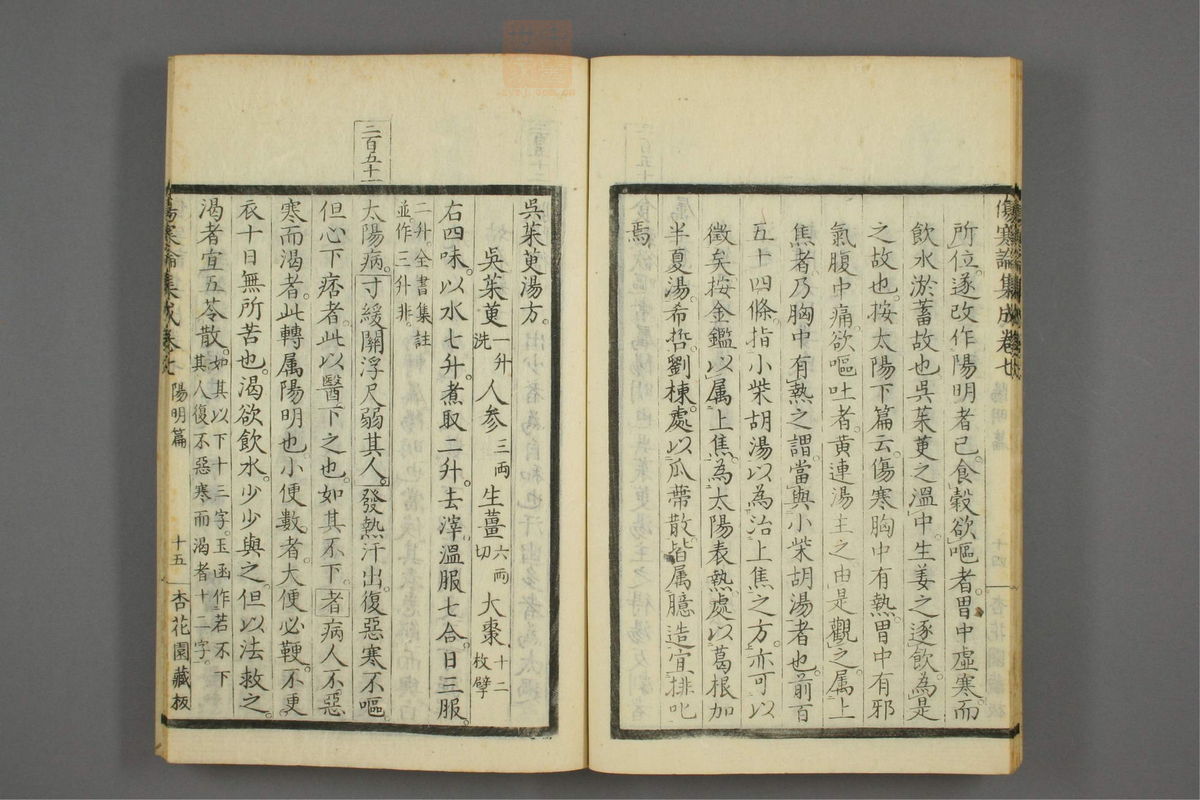 傷寒論集成卷七
所位。遂改作陽明者已。食穀欲嘔者。胃中虛寒。而
飲水淤蓄故也。吳茱萸之溫中。生姜之逐飲。為是
之故也。按太陽下篇云。傷寒胸中有熱。胃中有邪
氣。腹中痛。欲嘔吐者。黃連湯主之。由是觀之。属上
焦者。乃胸中有熱之謂。當與小柴胡湯者也。前百
五十四條。指小柴胡湯。以為治上焦之方。亦可以
徵矣。按金鑑以属上焦。為太陽表熱。處以葛根加
半夏湯。希哲。劉棟。處以瓜蔕散。皆属臆造。宜排叱
焉。
吳茱萸湯方。
吳茱萸一升洗 人參三両 生薑六両切 大棗十二枚擘
右四味。以水七升。煮取二升。去滓。溫服七合。日三服。
二升。全書集註
並作三升非。
二百五十一
太陽病。寸緩關浮尺弱。其人。發熱汗出。復惡寒。不嘔。
但心下痞者。此以醫下之也。如其不下者。病人不惡
寒而渴者。此轉属陽明也。小便數者。大便必鞕。不更
衣十日無所苦也。渴欲飲水。少少與之。但以法救之。
渴者宜五苓散。如其以下十三字。玉函作若不下
其人復不惡寒而渴者十二字。
傷寒論集成卷七 陽明篇 十五 杏花園藏板